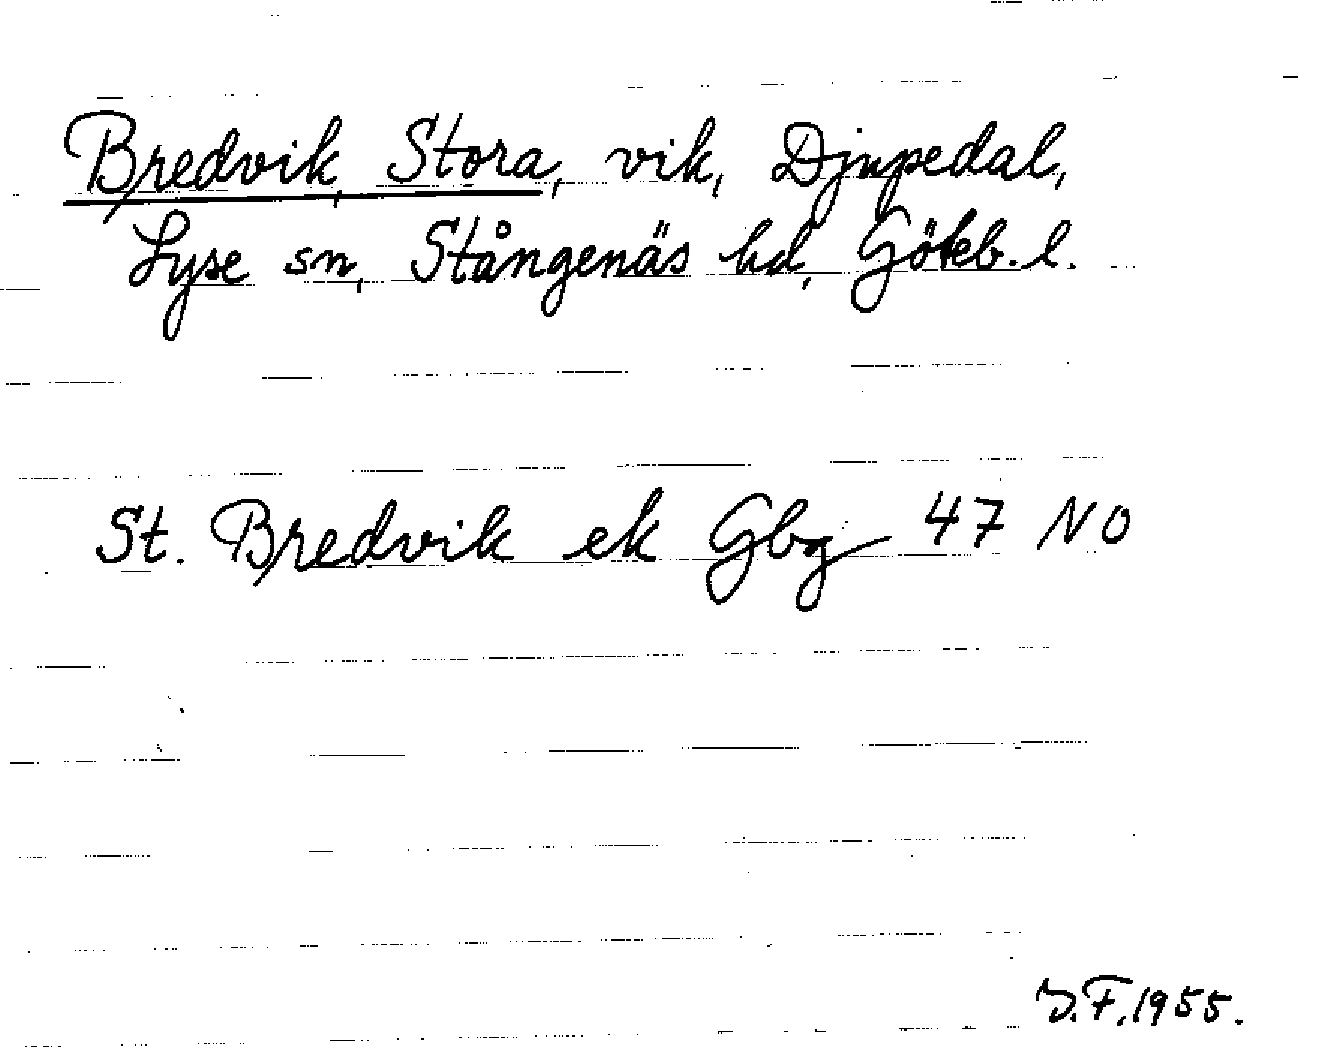 Bredvik, Stora, vik, Djupedal,
Lyse sn, Stångenäs hd, Göteb. l.
St. Bredvik ek Gbg 47 NO
D.F. 1955.